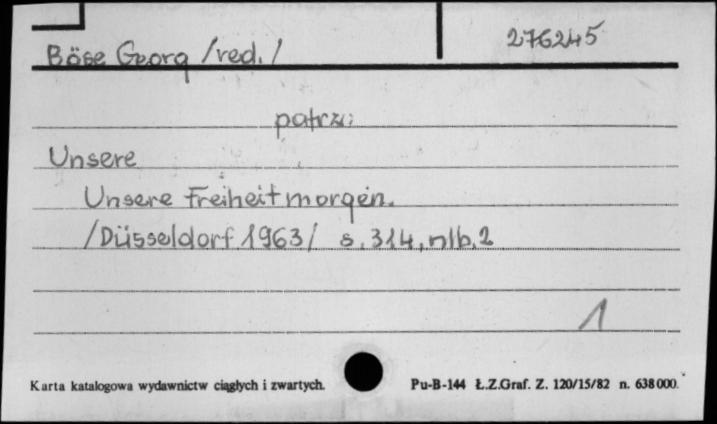 Böse Georg /red./ 276245
patrz:
Unsere
Unsere Freiheit morgen.
/Düsseldorf 1963/ s. 314, nlb. 2
1
Karta katalogowa wydawnictw ciągłych i zwartych. Pu-B-144 Ł.Z.Graf. Z. 120/15/82 n. 638000.